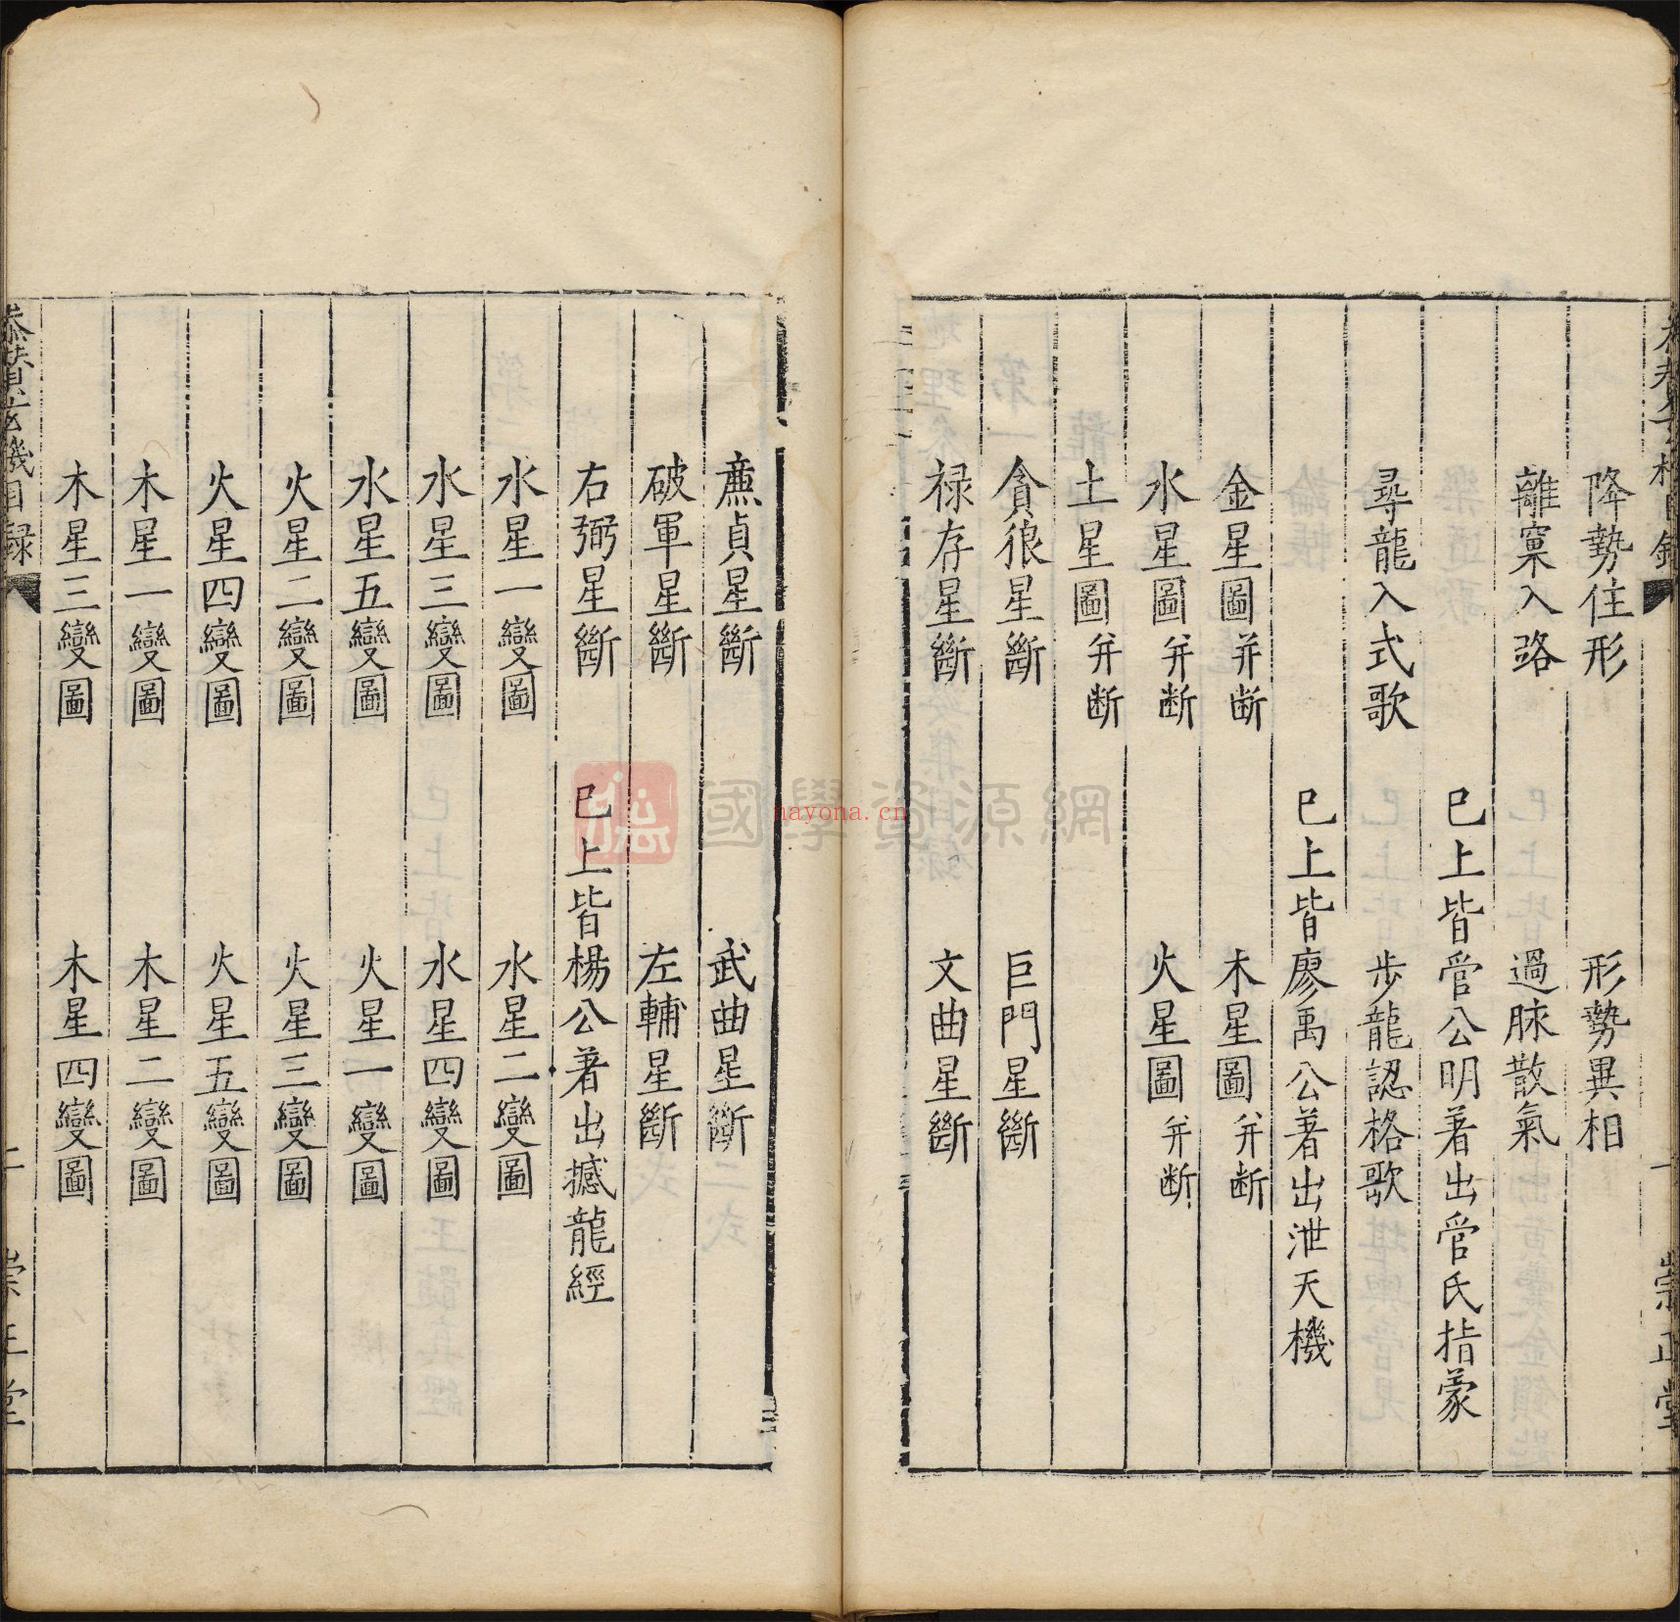 降勢住形　形勢異相
離窠入路　過脉散氣
已上皆管公明著出管氏指蒙
尋龍入式歌　步龍認格歌
已上皆廖禹公著出泄天機
金星圖并断　木星圖并断
水星圖并断　火星圖并断
土星圖并断
貪狼星斷　巨門星斷
禄存星斷　文曲星斷
亷貞星斷　武曲星斷
破軍星斷　左輔星斷
右弼星斷　已上皆楊公著出撼龍經
水星一變圖　水星二變圖
水星三變圖　水星四變圖
水星五變圖　火星一變圖
火星二變圖　火星三變圖
火星四變圖　火星五變圖
木星一變圖　木星二變圖
木星三變圖　木星四變圖
玄機目録
崇正堂
國學資源網
nayona.cn